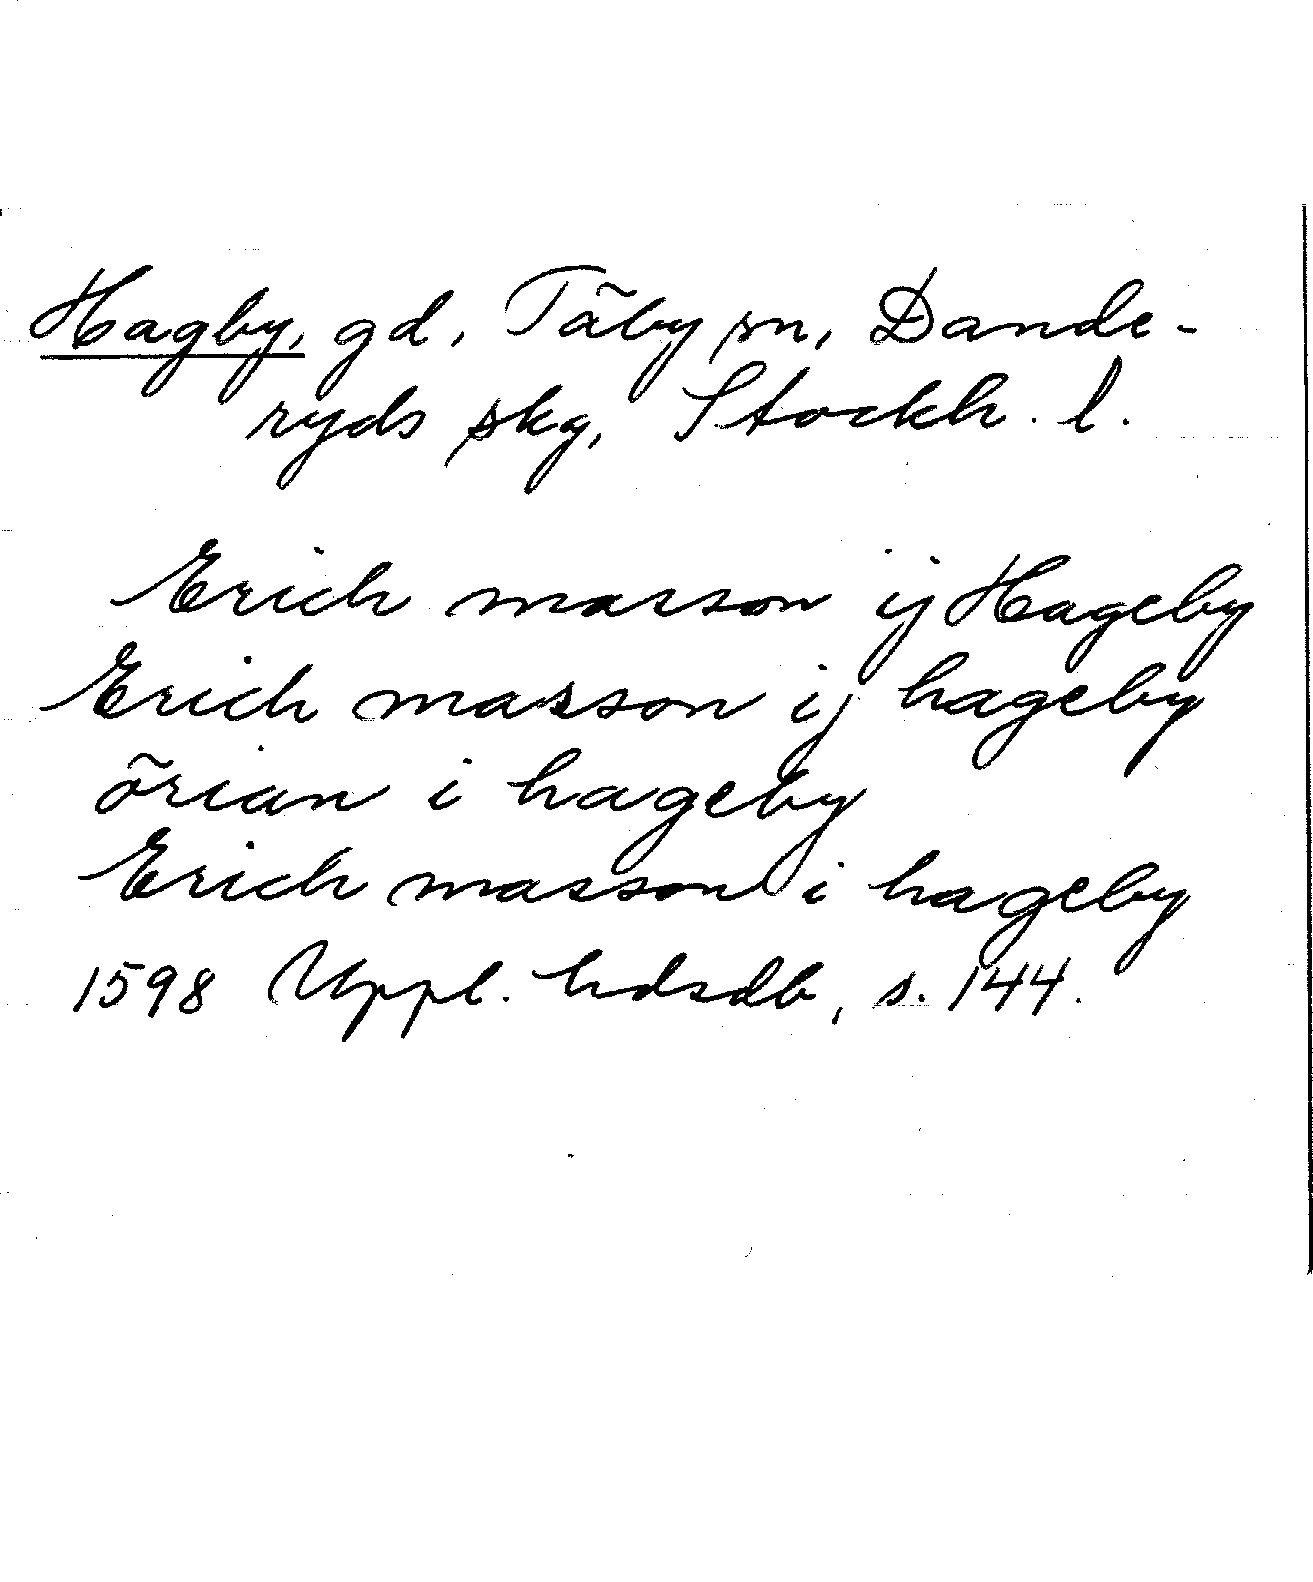 Hagby, gd, Täby sn, Dande-
ryds skg, Stockh. l.
Erich masson ij Hageby
Erich masson ij hageby
örian i hageby
Erich masson i hageby
1598 Uppl. hdsdb, s. 144.